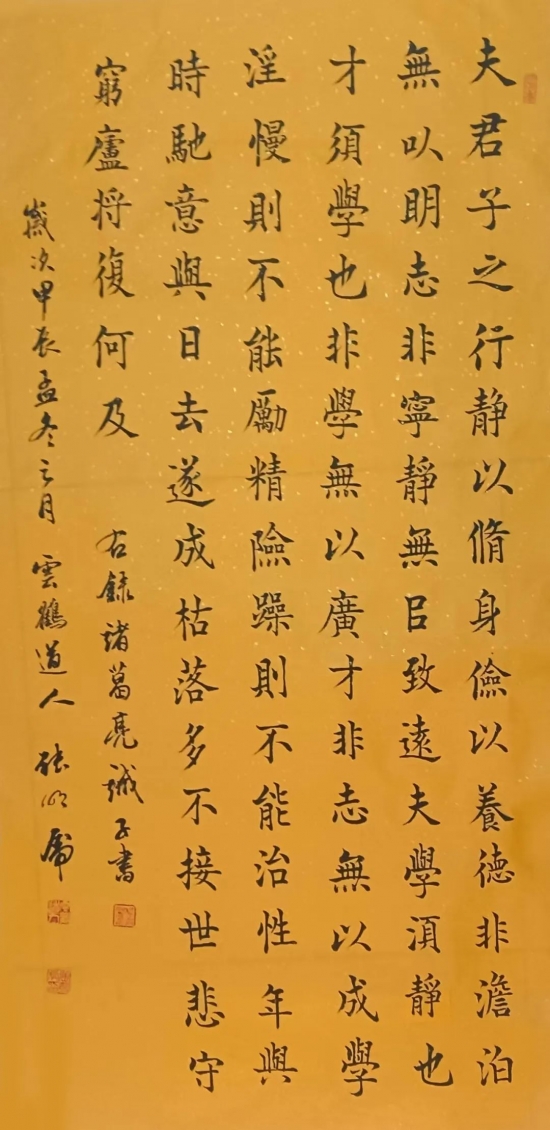 夫君子之行靜以脩身儉以養德非澹泊
無以明志非寧靜無㠯致遠夫學須靜也
才須學也非學無以廣才非志無以成學
淫慢則不能勵精險躁則不能治性年與
時馳意與日去遂成枯落多不接世悲守
窮廬將復何及
右錄諸葛亮誡子書
歲次甲辰孟冬之月 雲鶴道人